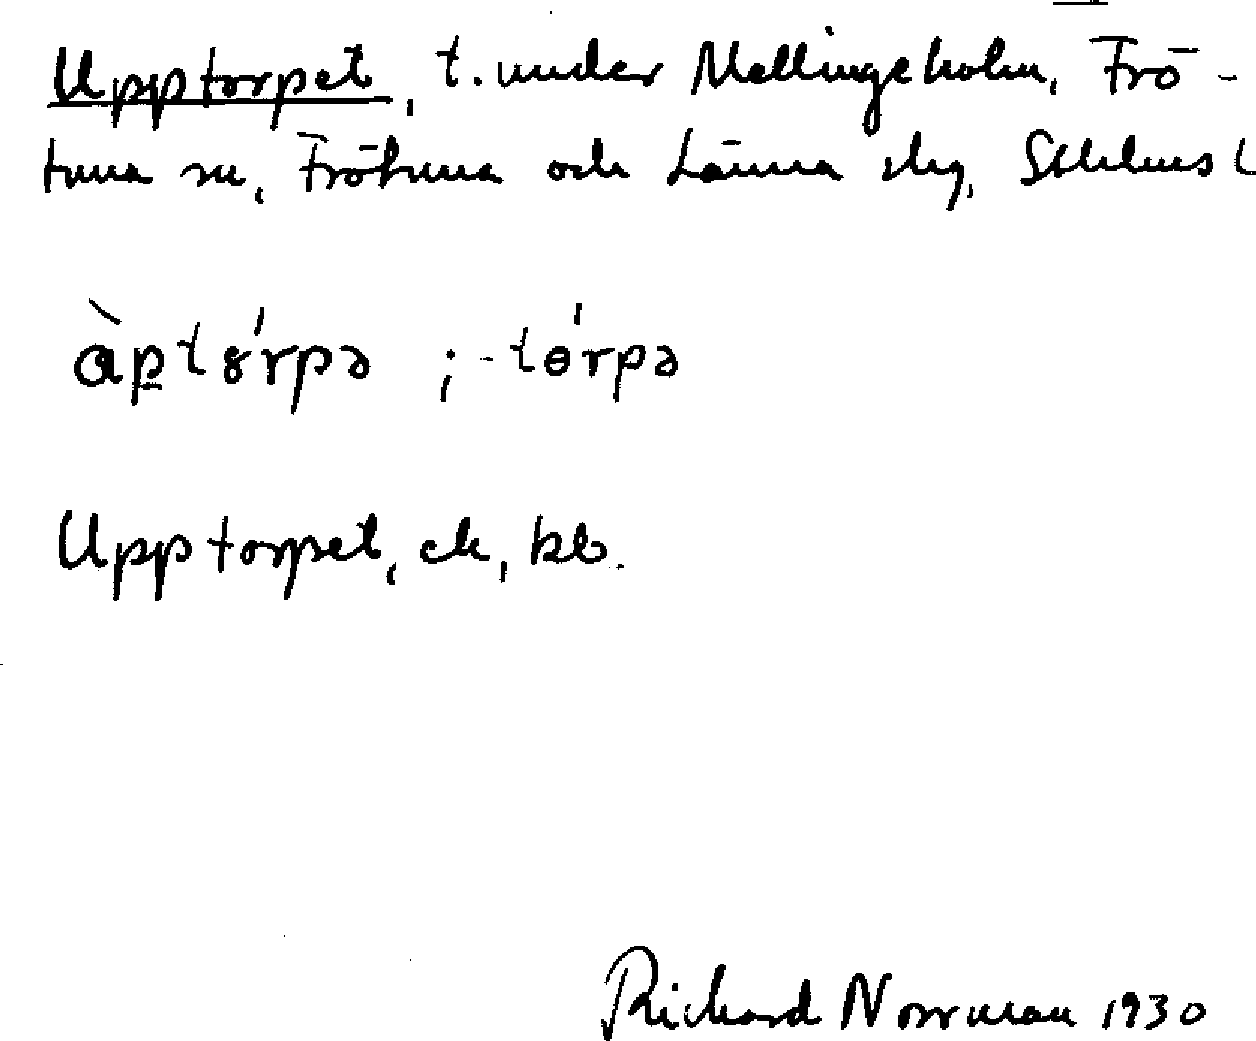 Upptorpet, t. under Mellingeholm, Frö-
tuna sn, Frötuna och Länna slg, Sthlms l
àptɤ́rpə ; -tɵ́rpə
Upptorpet, ek, kb.
Richard Norrman 1930